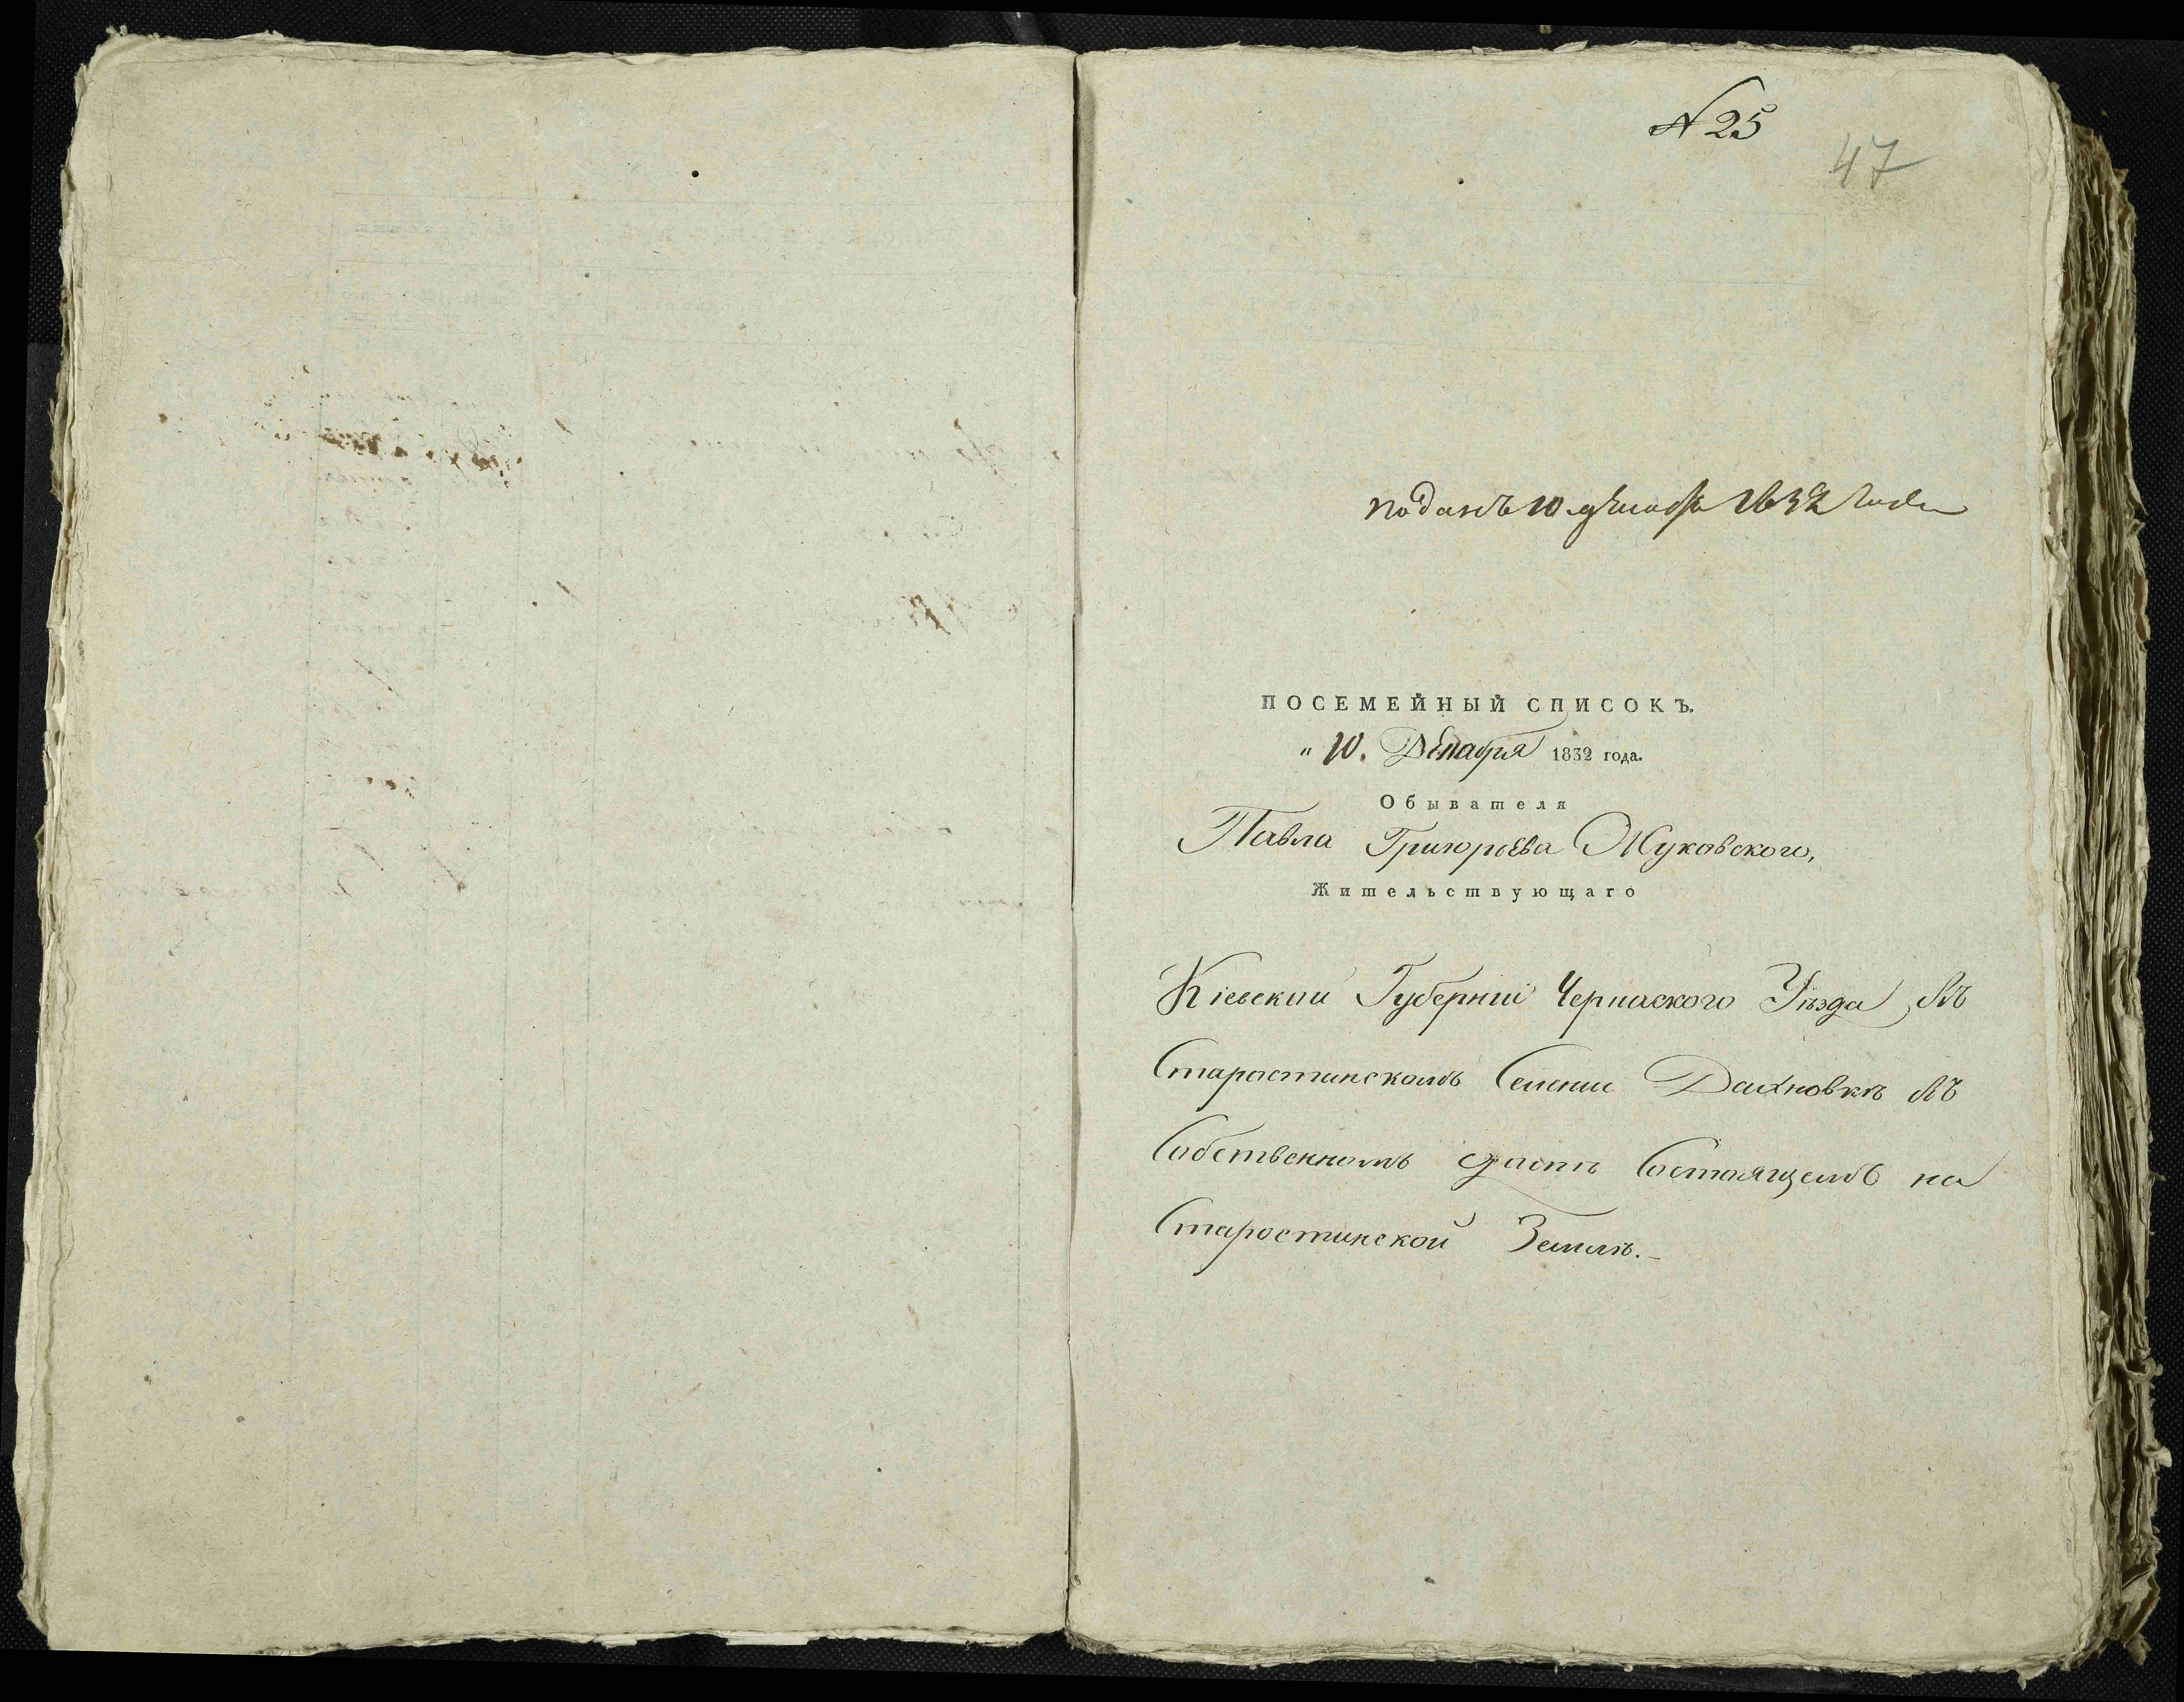 № 25
47
поданъ 10 декабря 1832 года
ПОСЕМЕЙНЫЙ СПИСОКЪ.
„ 10. Декабря 1832 года.
Обывателя
Павла Григорьева Жуковского,
Жительствующаго
Кіевской Губерніи Черкаского Уѣзда, въ
Старостинскомъ Селеніи Дахновкѣ въ
Собственномъ домѣ Состоящемъ на
Старостинской Землѣ.-